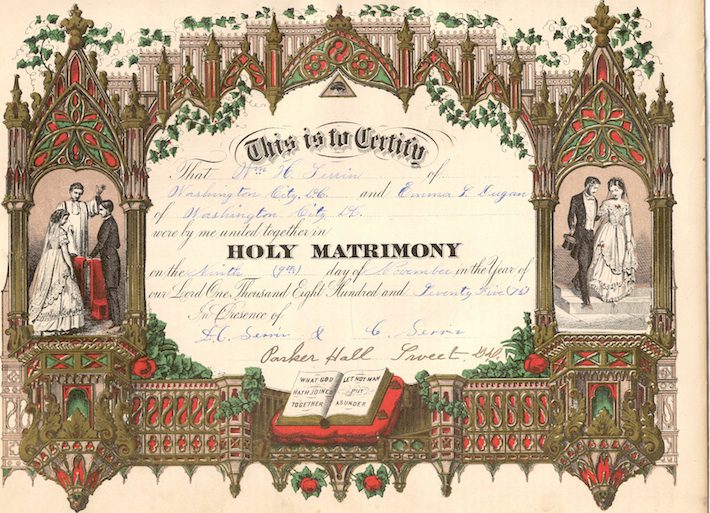 This is to Certify
That Wm H. Serrin of
Washington City D.C. and Emma F. Dugan
of Washington City D.C.
were by me united together in
HOLY MATRIMONY
on the Ninth (9th) day of November in the Year of
our Lord One Thousand Eight Hundred and Seventy Five (75)
In Presence of
D.C. Serrin & C. Serrin
Parker Hall Sweet, D.D.
WHAT GOD HATH JOINED TOGETHER
LET NOT MAN PUT ASUNDER